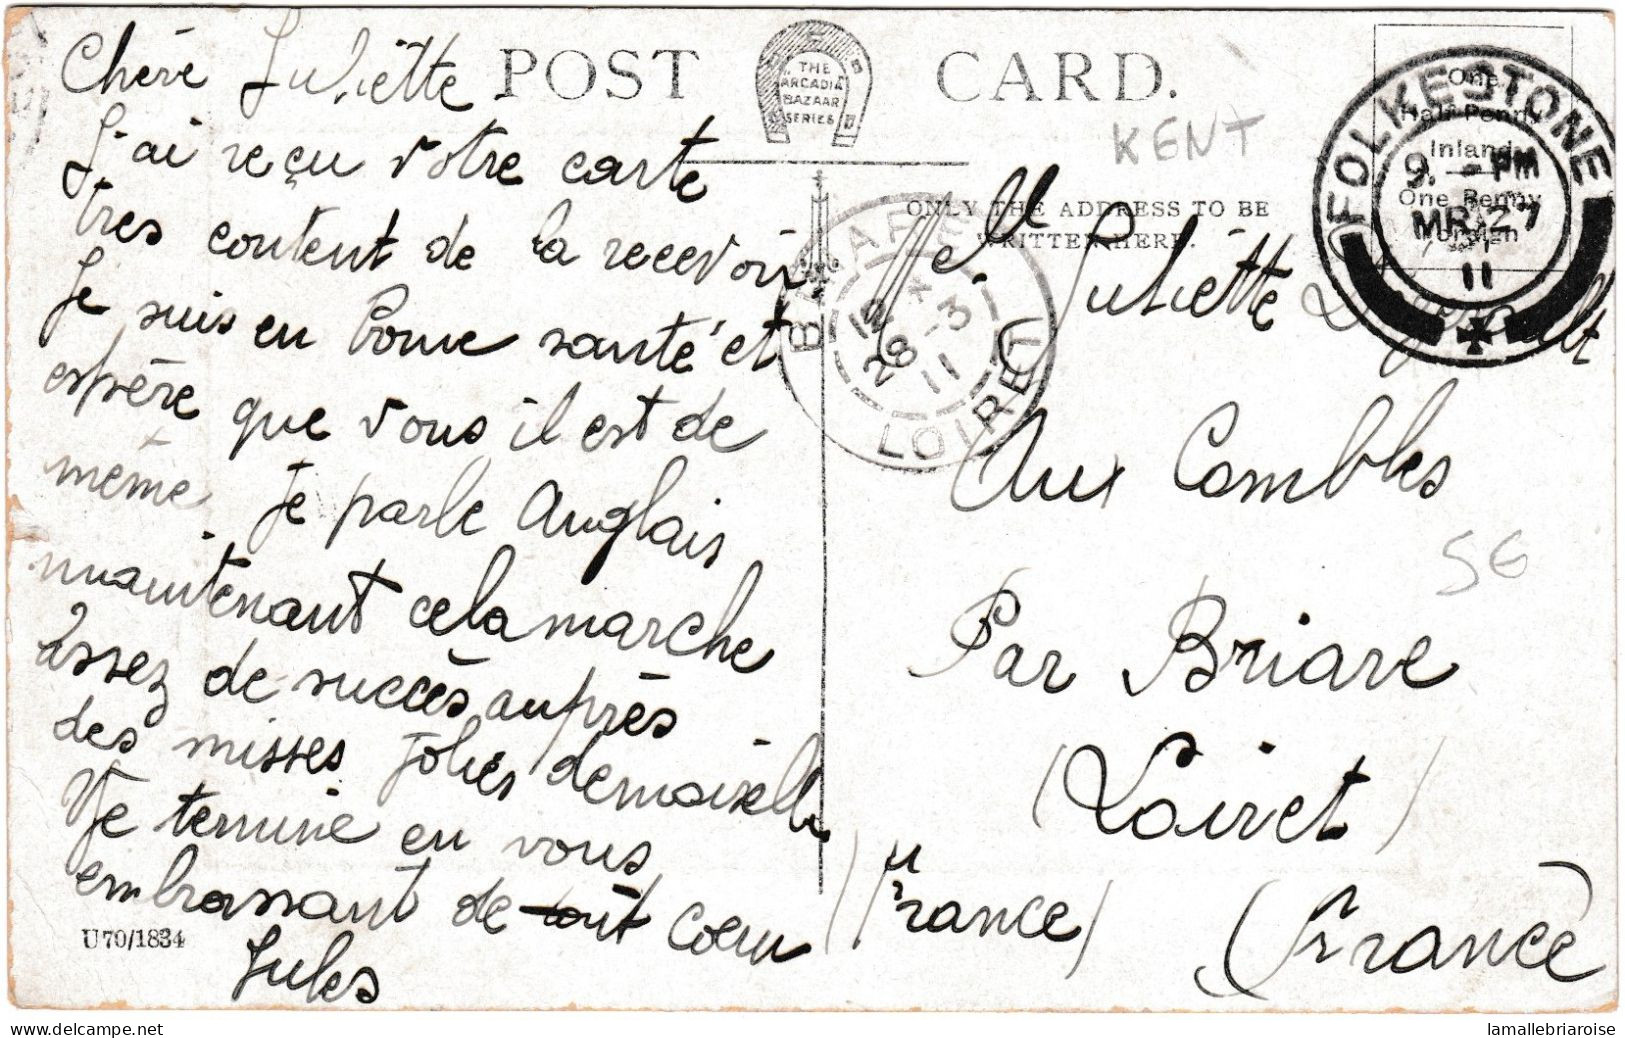 POST CARD.
THE
ARCADIA
BAZAAR
SERIES
KENT
Chère Juliette
J'ai reçu votre carte
très content de la recevoir
Je suis en bonne santé et
espère que vous il est de
même Je parle Anglais
maintenant cela marche
assez de succès auprès
des misses jolies demoiselles
Je termine en vous
embrassant de tout coeur
Jules
U70/1834
ONLY THE ADDRESS TO BE
WRITTEN HERE.
One
Half Penny
Inland
One Penny
Foreign
FOLKESTONE
9. PM
MR 27
11
BRIARE
12 *
28 - 3
11
LOIRET
Melle Juliette
Aux Combles
Par Briare
(Loiret)
(France)
(France)
SG
lamallebriaroise